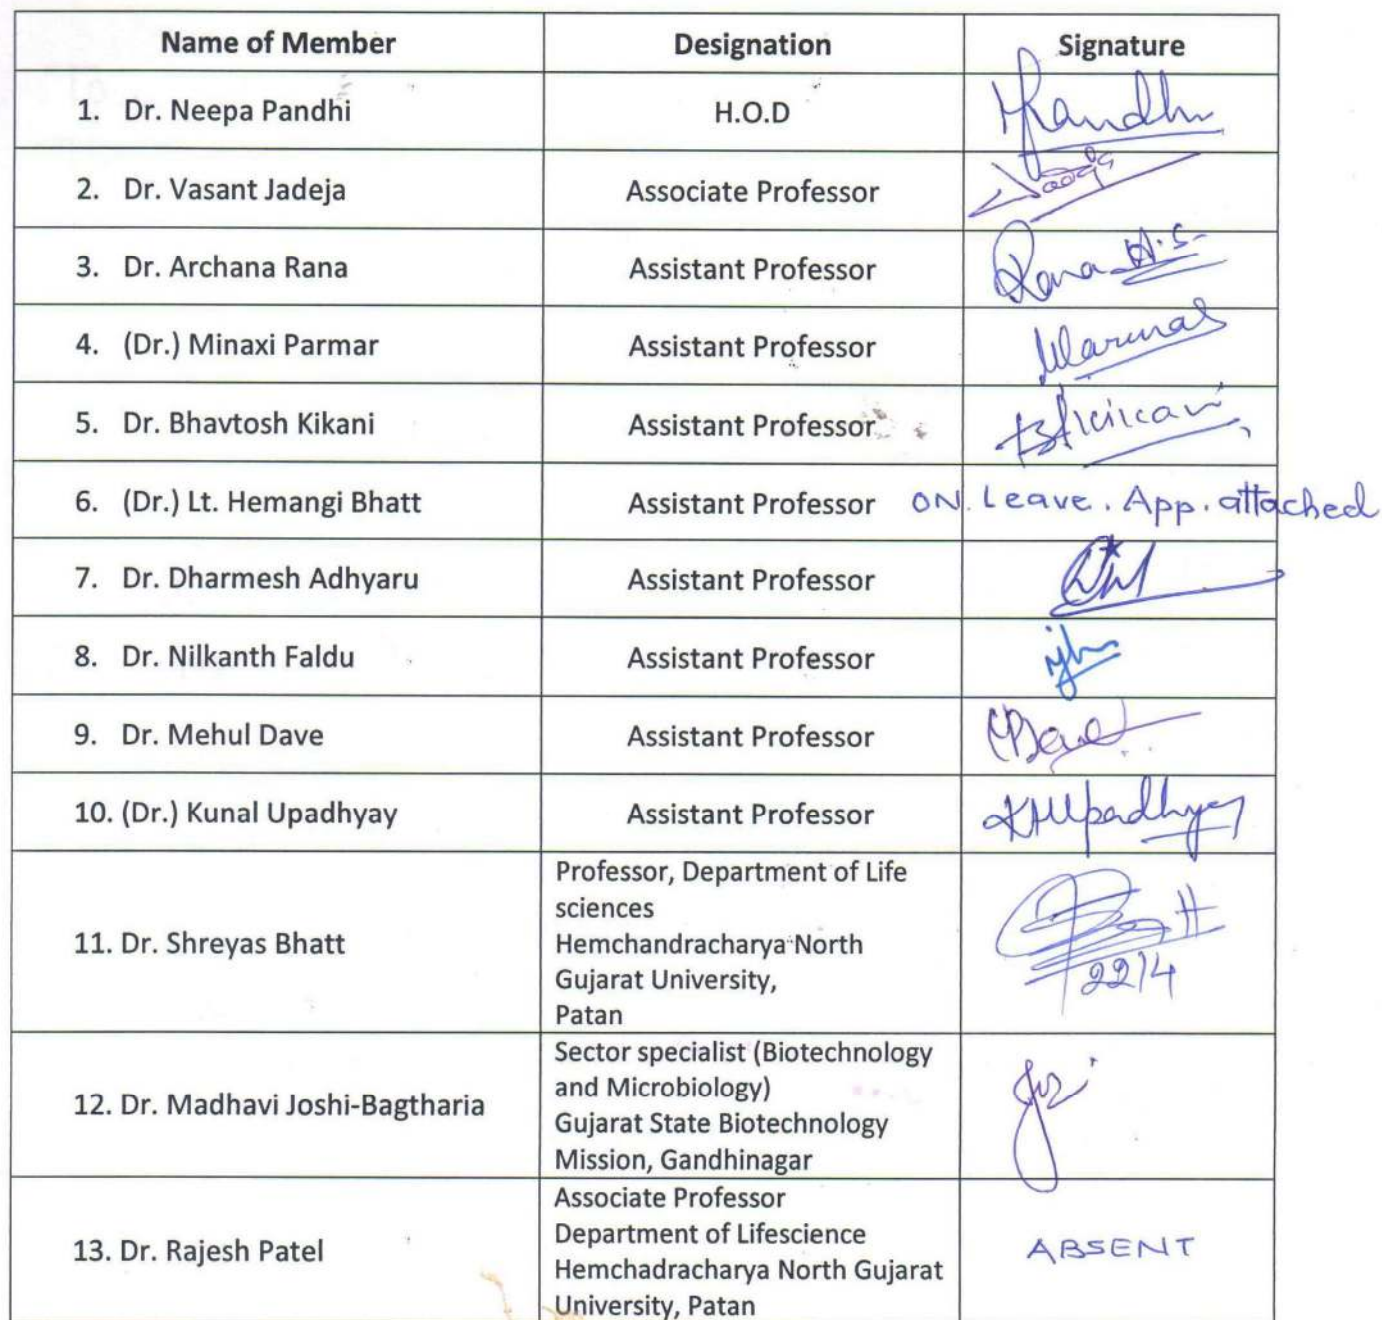 Name of Member Designation Signature
1. Dr. Neepa Pandhi H.O.D
2. Dr. Vasant Jadeja Associate Professor
3. Dr. Archana Rana Assistant Professor Rana A.S.
4. (Dr.) Minaxi Parmar Assistant Professor
5. Dr. Bhavtosh Kikani Assistant Professor
6. (Dr.) Lt. Hemangi Bhatt Assistant Professor ON. Leave. App. attached
7. Dr. Dharmesh Adhyaru Assistant Professor
8. Dr. Nilkanth Faldu Assistant Professor
9. Dr. Mehul Dave Assistant Professor
10. (Dr.) Kunal Upadhyay Assistant Professor KHUpadhyay
11. Dr. Shreyas Bhatt
Professor, Department of Life
sciences
Hemchandracharya North
Gujarat University,
Patan
22/4
12. Dr. Madhavi Joshi-Bagtharia
Sector specialist (Biotechnology
and Microbiology)
Gujarat State Biotechnology
Mission, Gandhinagar
13. Dr. Rajesh Patel
Associate Professor
Department of Lifescience
Hemchadracharya North Gujarat
University, Patan
ABSENT